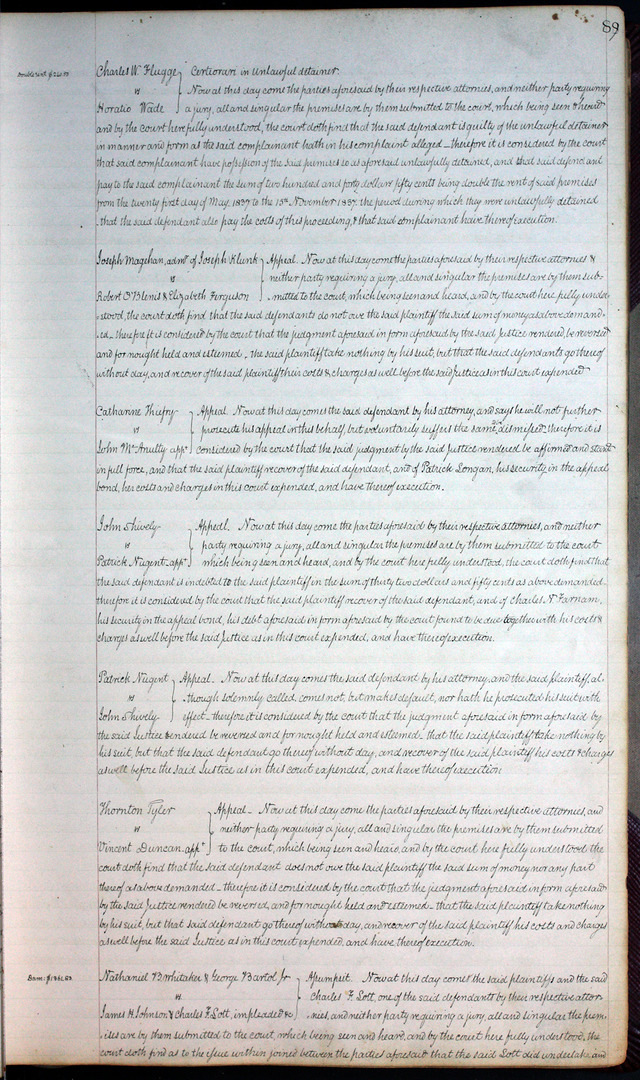 89
Double rent $240.50
Charles W. Flugge } Certiorari in unlawful detainer.
vs Now at this day come the parties aforesaid by their respective attornies, and neither party requiring
Horatio Wade a jury, all and singular the premises are by them submitted to the court, which being seen & heard
and by the court here fully understood, the court doth find that the said defendant is guilty of the unlawful detainer
in manner and form as the said complainant hath in his complaint alleged – therefore it is considered by the court
that said complainant have possession of the said premises so as aforesaid unlawfully detained, and that said defendant
pay to the said complainant the sum of two hundred and forty dollars fifty cents being double the rent of said premises
from the twenty first day of May 1837 to the 15th November 1837, the period during which they were unlawfully detained
– that the said defendant also pay the costs of this proceeding, & that said complainant have thereof execution.
Joseph Magehan, admr of Joseph Klunk } Appeal. Now at this day come the parties aforesaid by their respective attornies &
vs neither party requiring a jury, all and singular the premises are by them sub-
Robert O'Blenis & Elizabeth Ferguson mitted to the court, which being seen and heard, and by the court here fully under
-stood, the court doth find that the said defendants do not owe the said plaintiff the said sum of money as above demand
-ed – therefore it is considered by the court that the judgment aforesaid in form aforesaid by the said Justice rendered, be reversed
and for nought held and esteemed – the said plaintiff take nothing by his suit, but that the said defendants go thereof
without day, and recover of the said plaintiff their costs & charges as well before the said Justice as in this court expended
Catharine Thiefry } Appeal. Now at this day comes the said defendant by his attorney, and says he will not further
vs prosecute his appeal in this behalf, but voluntarily suffers the same dismissed; therefore it is
John McAnully appt considered by the court that the said judgment by the said Justice rendered be affirmed and stand
in full force, and that the said plaintiff recover of the said defendant, and of Patrick Longan, his security in the appeal
bond, her costs and charges in this court expended, and have thereof execution.
John Shively } Appeal. Now at this day come the parties aforesaid by their respective attornies, and neither
vs party requiring a jury, all and singular the premises are by them submitted to the court
Patrick Nugent appt which being seen and heard, and by the court here fully understood, the court doth find that
the said defendant is indebted to the said plaintiff in the sum of thirty two dollars and fifty cents as above demanded
therefore it is considered by the court that the said plaintiff recover of the said defendant, and of Charles N. Farnam,
his security in the appeal bond, his debt aforesaid in form aforesaid by the court found to be due together with his costs &
charges as well before the said Justice as in this court expended, and have thereof execution.
Patrick Nugent } Appeal. Now at this day comes the said defendant by his attorney, and the said plaintiff, al-
vs though solemnly called, comes not, but makes default, nor hath he prosecuted his suit with
John Shively effect – therefore it is considered by the court that the judgment aforesaid in form aforesaid by
the said Justice rendered be reversed and for nought held and esteemed: that the said plaintiff take nothing by
his suit, but that the said defendant go thereof without day, and recover of the said plaintiff his costs & charges
as well before the said Justice as in this court expended, and have thereof execution
Thornton Tyler } Appeal – Now at this day come the parties aforesaid by their respective attornies, and
vs neither party requiring a jury, all and singular the premises are by them submitted
Vincent Duncan appt to the court, which being seen and heard, and by the court here fully understood the
court doth find that the said defendant does not owe the said plaintiff the said sum of money nor any part
thereof as above demanded – therefore it is considered by the court that the judgment aforesaid in form aforesaid
by the said Justice rendered be reversed, and for nought held and esteemed – that the said plaintiff take nothing
by his suit, but that said defendant go thereof without day, and recover of the said plaintiff his costs and charges
as well before the said Justice as in this court expended, and have thereof execution.
Nathaniel B. Whitaker & George Bartol Jr } Assumpsit. Now at this day come the said plaintiffs and the said
vs Charles F. Lott, one of the said defendants by their respective attor-
James H. Johnson & Charles F. Lott, impleaded &c nies, and neither party requiring a jury, all and singular the prem-
ises are by them submitted to the court, which being seen and heard, and by the court here fully understood, the
court doth find as to the issue within joined between the parties aforesaid that the said Lott did undertake and